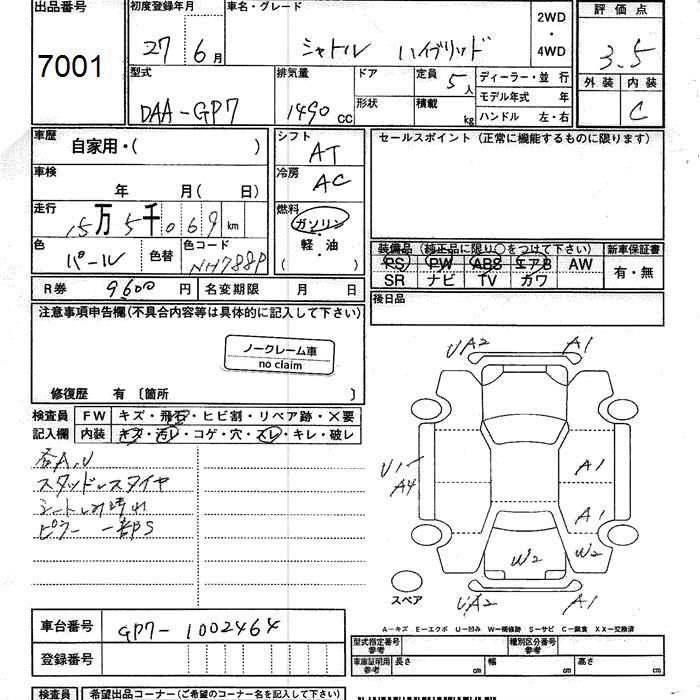 出品番号 初度登録年月 車名・グレード 評価点
7001 27年6月 シャトル ハイブリッド 2WD・4WD 3.5
外装 内装
C
型式 排気量 ドア 定員 ディーラー・並行
DAA-GP7 1490 CC 5人
形状 積載 kg モデル年式 年
ハンドル 左・右
車歴 自家用・( ) シフト AT セールスポイント (正常に機能するものに限ります)
車検 年 月( 日) 冷房 AC
走行 15万5千069 km 燃料 ガソリン・軽・油 ( )
色 パール 色替 色コード NH788P
装備品 (純正品に限り○をつけて下さい) 新車保証書
PS PW ABS エアB AW 有・無
SR ナビ TV カワ
R券 9600 円 名変期限 月 日 後日品
注意事項申告欄(不具合内容等は具体的に記入して下さい)
ノークレーム車
no claim
修復歴 有 〔箇所 〕
検査員 FW キズ・飛石・ヒビ割・リペア跡・×要
記入欄 内装 キズ・汚レ・コゲ・穴・スレ・キレ・破レ
各A,U
スタッドレスタイヤ
ピラー 一部PS
UA2 A1
U1 A4 A1
A1
W2 W2
スペア UA2 A1
A-キズ E-エクボ U-凹み W-補修跡 S-サビ C-腐食 XX-交換済
車台番号 GP7-1002464
登録番号
型式指定番号 参考 種別区分番号 参考
車庫証明用 参考 長さ cm 幅 cm 高さ cm
検査員 希望出品コーナー(ご希望のコーナー名を記入して下さい)